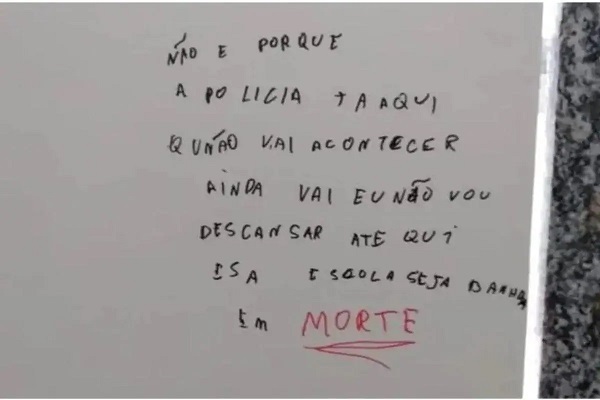 NÃO E PORQUE
A POLICIA TA AQUI
QUNÃO VAI ACONTECER
AINDA VAI EU NÃO VOU
DESCANSAR ATÉ QUI
ESA ESCOLA SEJA BANHA
EM MORTE